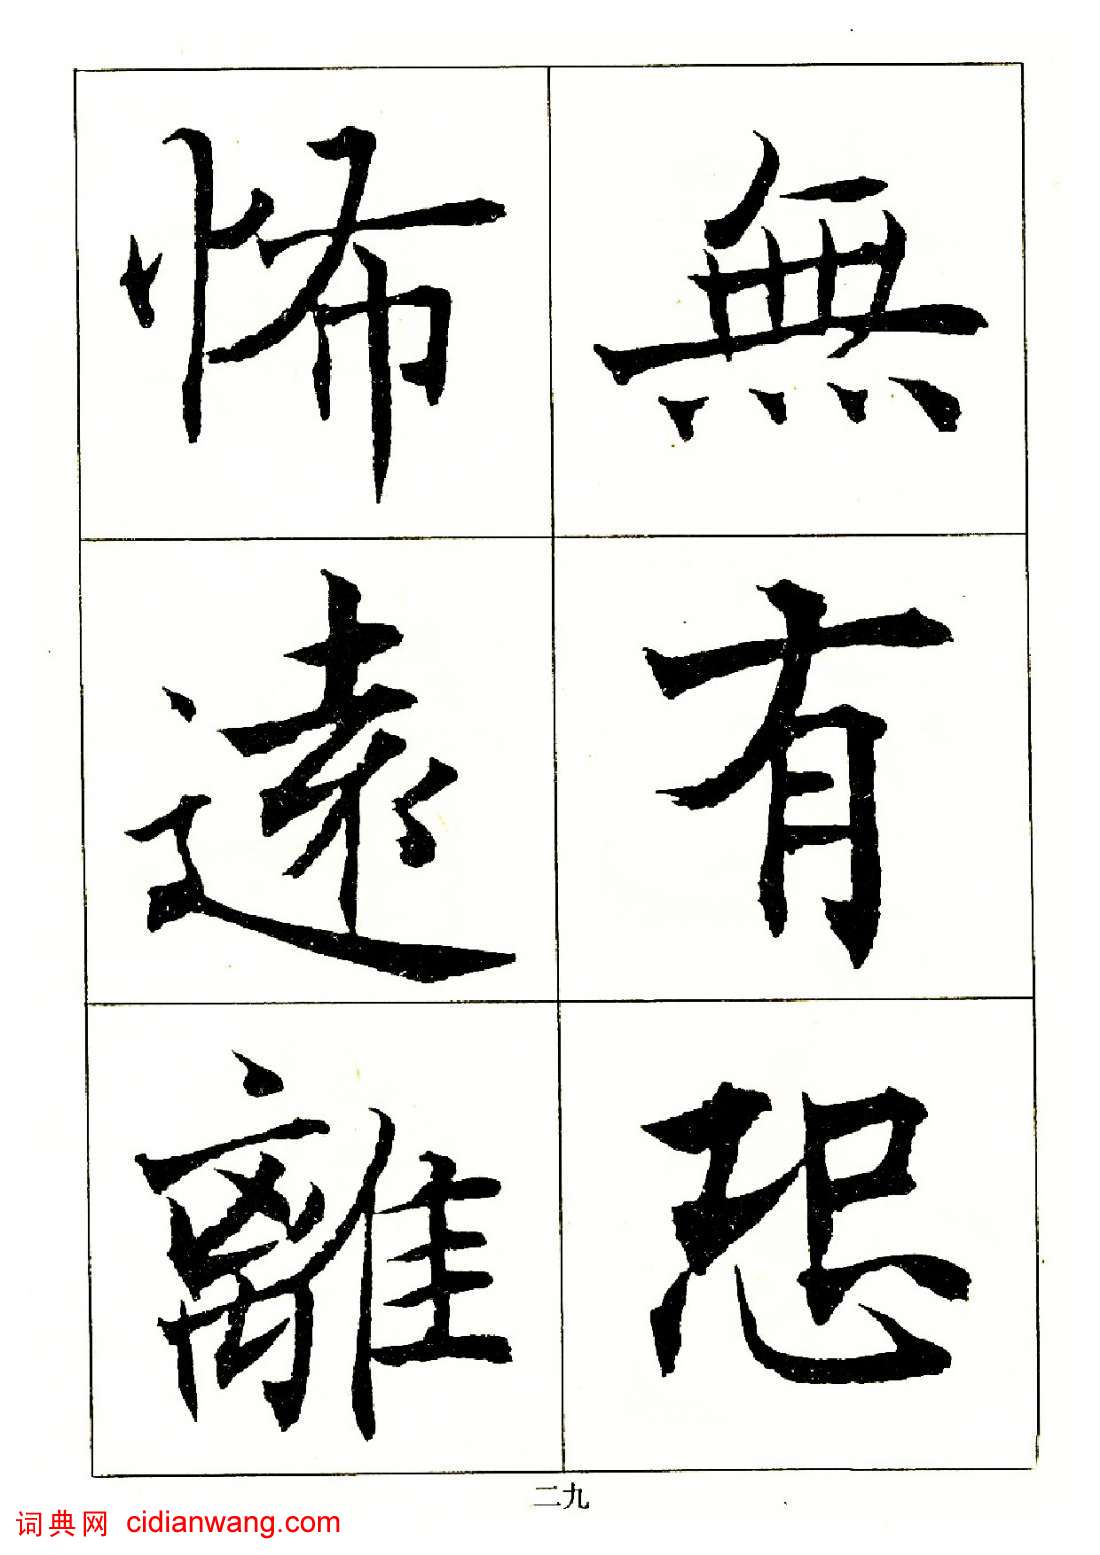 無有恐
怖遠離
二九
词典网 cidianwang.com